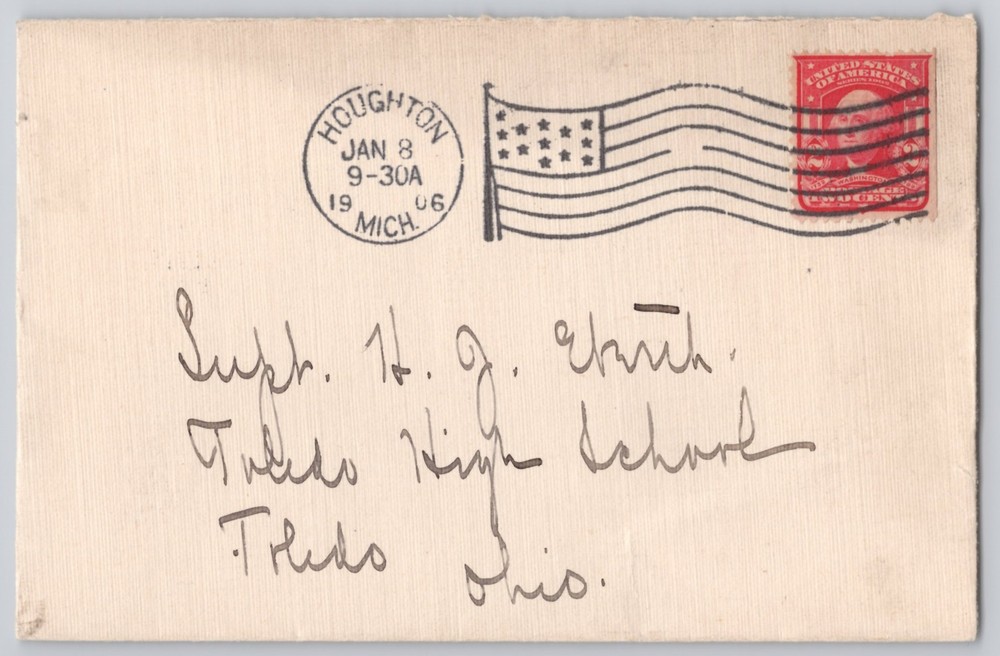 HOUGHTON
JAN 8
9-30A
19 06
MICH.
UNITED STATES
OF AMERICA
2 2
WASHINGTON
TWO CENTS
Supt. H. J. Eberth.
Toledo High School
Toledo
Ohio.